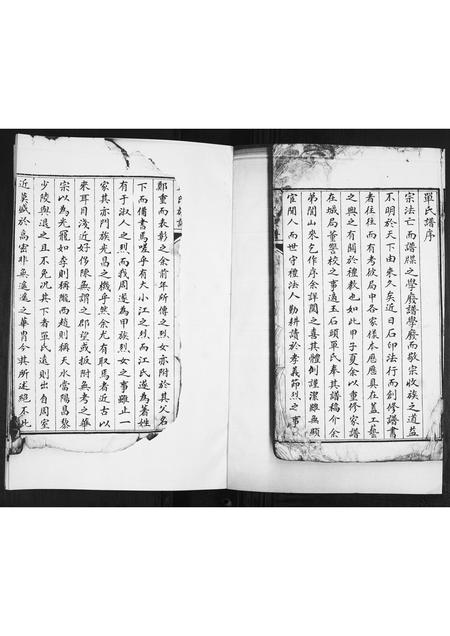 單氏譜序
宗法亡而譜牒之學廢譜學廢而敬宗收族之道益
不明於天下由來久矣近日石印法行而創修譜書
者往往而有考欣局中各家樣本應應具在蓋工藝
之興之有關於禮教也如此甲子夏余以重修家譜
在城局董讐校之事適玉石頭單氏奉其譜稿介余
弟閣山來乞作序余詳閱之喜其體例謹潔雖無顯
宦聞人而世守禮法人勤耕讀於孝義節烈之事
鄭重而表彰之余前年所傳之烈女亦附於其父名
下而備書焉嗟乎有大小江之烈而江氏遂為著姓
有于淑人之烈而我周遂為甲族烈女之事雖止一
家其亦門族光昌之機乎然余尤有取焉者近古以
來耳目淺近好侈陳無謂之郡望或扳附無考之華
宗以為光寵如李則稱隴西趙則稱天水當陽昌黎
少陵與退之且不免况其下者單氏遠則出自周室
近莫盛於高密非無遙遙之華胄今其所述絕不